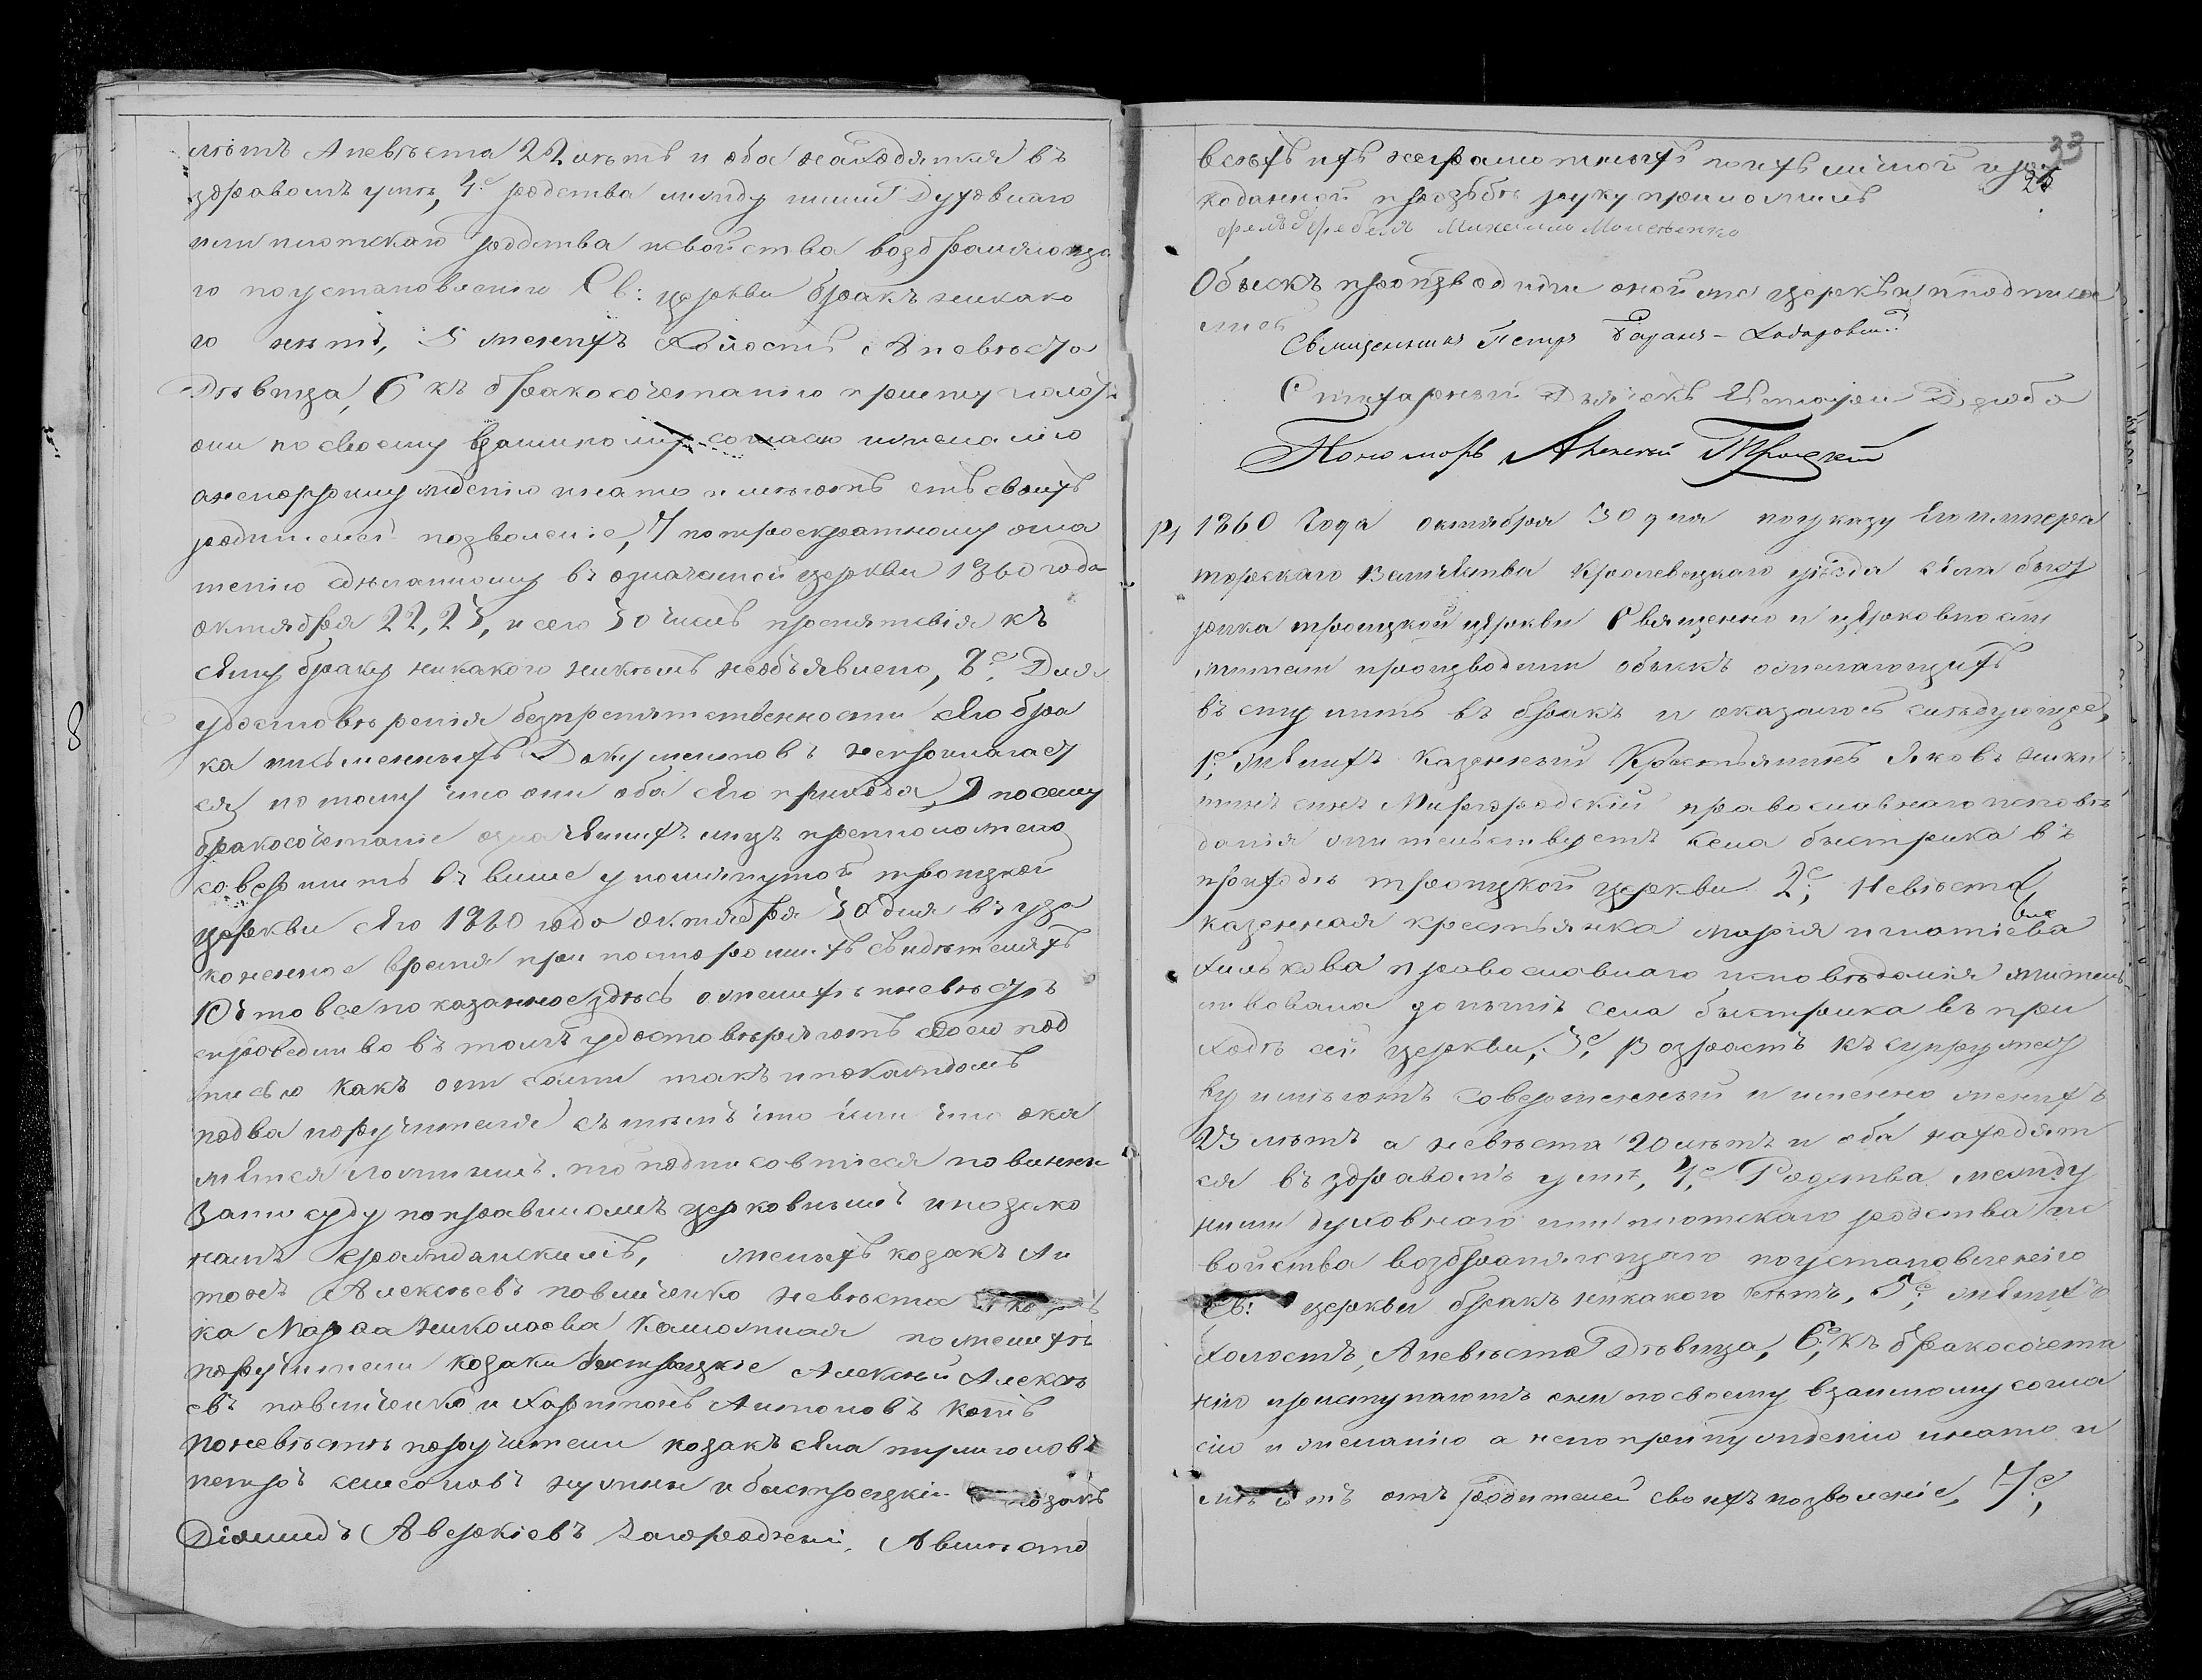 лѣтъ Аневѣста 22 лѣтъ и оба находятся въ
здравомъ умѣ, 4е родства между ними Духовнаго
или плотскаго родства исвойства возбраняюща
го поустановленію Св: церкви бракъ никако
го нѣтъ, 5 женихъ Холостъ Аневѣста
Дѣвица, 6 къ бракосочетанію приступаютъ
они посвоему взаимному согласію ижеланію
анепопринужденію инато имѣютъ отъ своихъ
родителей позволеніе, 7 потроекратному огла
шенію сдѣланному въ означеной церкви 1860 года
октября 22, 23, и сего 30 чиселъ препятствія къ
сему браку никакого никѣмъ необъявлено, 8е, Для
удостовѣренія безпрепятственности сего бра
ка письменныхъ Документовъ неприлагает
ся потому что они оба сего прихода, 9 посему
бракосочетаніе означеныхъ лицъ предположено
совершить въ више упомянутой троицкой
церкви сего 1860 года октября 30 дня въ уза
коненное время при постороннихъ свидѣтеляхъ
10 что все показанное здѣсь ожених иневѣстѣ
справедливо въ томъ удостовѣряютъ своею под
писью какъ они сами такъ ипокаждомъ
подва поручителя стѣмъ что если что ока
жется ложнымъ. то подписавшіеся повинны
зато суду поправиламъ церковнымъ ипозако
намъ гражданскимъ, женихъ козакъ Ан
тонъ Алексѣевъ павличенко невѣста
ка Марѳа Николаева Каложная поженихѣ
поручители козаки быстрицкіе Алексѣй Алексѣ
евъ павличенко и Харитонъ Антоновъ Котъ
поневѣстѣ поручители козакъ села
петръ самсоновъ и быстрицкій козакъ
Діомидъ Аверкіевъ Загородній, Авмѣсто
33
25
всѣхъ ихъ неграмотныхъ поихъ личной ирук
коданной прозьбѣ руку приложилъ
Михаило Моисѣенко
Обыскъ производили оной же церкви иподписа
лись
Священникъ Петръ Базанъ-
Стихарный Дьячекъ Дзюба
Пономарь Алексѣй Троицкій
1860 Года октября 30 дня поуказу Его импера
торскаго величѣства Кролевецкаго уѣзда села быст
рика троицкой церкви Священно и церковнослу
жители производили обыскъ ожелающихъ
въступить въ бракъ и оказалось слѣдующее,
1е, женихъ казенный Крестьянинъ Яковъ Ники
тинъ синъ Миргородскій православнаго исповѣ
данія жительствуетъ села быстрика въ
приходѣ троицкой церкви 2е, Невѣста
казенная крестьянка марія игнатіева
Хилькова православнаго исповѣданія житель
ствовала донынѣ села быстрика въ при
ходѣ сей церкви, 3е, Возрастъ къ супружест
ву имѣютъ совершенный и именно женихъ
23 лѣтъ а невѣста 20 лѣтъ и оба находят
ся въ здравомъ умѣ, 4е, Родства между
ними духовнаго или плотскаго родства ис
войства возбраняющаго поустановленію
Св: церкви бракъ никакого нѣтъ, 5е, женихъ
холостъ, Аневѣста Дѣвица, 6е, къ бракосочета
нію приступаютъ они посвоему взаимному согла
сію и желанію а непопринужденію инато и
мѣютъ отъ родителей своихъ позволеніе, 7е,
8